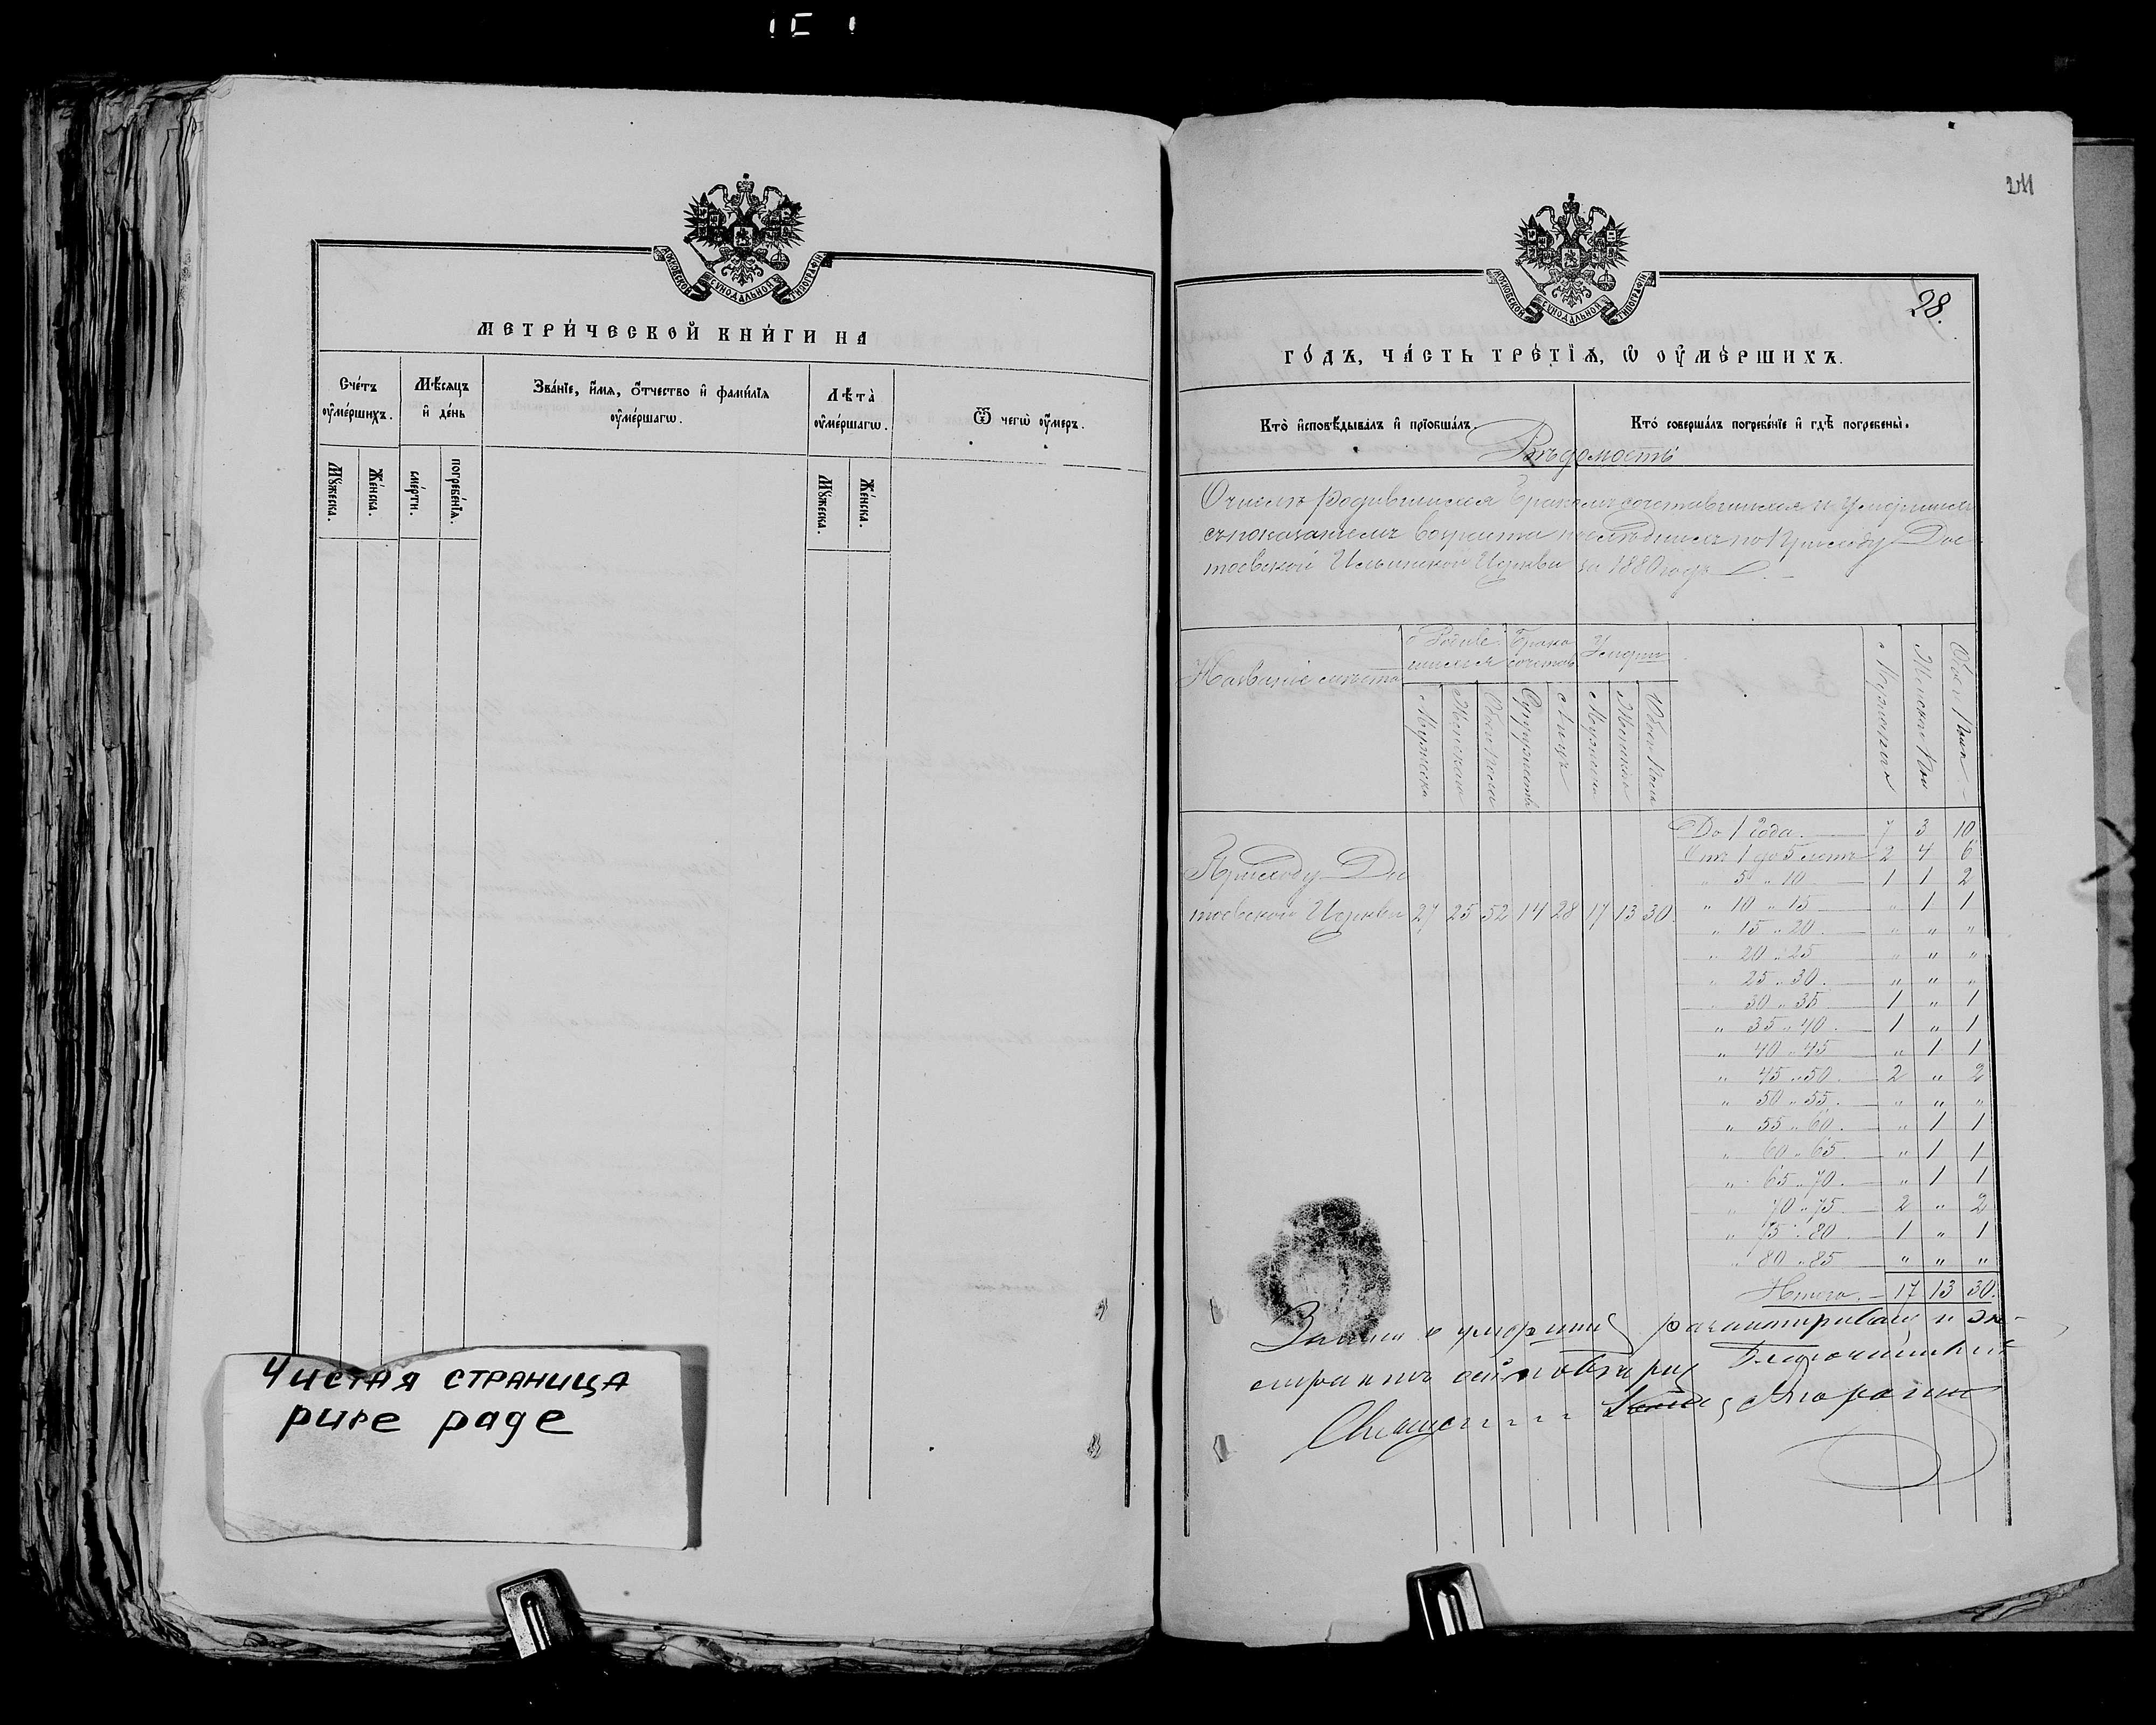 МОСКОВСКОЙ СѴНОДАЛЬНОЙ ТИПОГРАФІИ
МЕТРИ́ЧЕСКОЙ КНИ́ГИ НА
Сче́тъ ᲂу҆ме́ршихъ.
Мѣ́сяцъ и҆ де́нь
Зва́нїе, и҆́мя, ѻ҆́тчество и҆ фами́лїя ᲂу҆ме́ршагѡ.
Лѣ́та̀ ᲂу҆ме́ршагѡ.
Ѿ чегѡ̀ ᲂу҆́меръ.
Мꙋ́жеска.
Же́нска.
сме́рти.
погребе́нїѧ.
Мꙋ́жеска.
Же́нска.
Чистая страница
pure page
28.
МОСКОВСКОЙ СѴНОДАЛЬНОЙ ТИПОГРАФІИ
ГО́ДЪ, ЧА́СТЬ ТРЕ́ТЇѦ, Ѡ҆ ОУ҆МЕ́РШИХЪ.
Кто̀ и҆сповѣ́дывалъ и҆ прїобща́лъ.
Кто̀ соверша́лъ погребе́нїе и҆ гдѣ̀ погребены̀.
Вѣдомость
О числѣ родившихся бракомъ сочетавшихся и умершихъ
съ показаніемъ возраста послѣднихъ по приходу Дос
тоевской Ильинской Церкви за 1880 годъ
Названіе мѣста
Родив шихся
Брако сочетав
Умерш
Мужеска
Женскаго
Обоего Пола
Супружествъ
Лицъ
Мужеска
Женскаго
Обоего Пола
Мужескаго
Женскаго Пол
Обоего Пола
Приходу Дос
тоевской Церкви 27 25 52 14 28 17 13 30
До 1 года. 7 3 10
Отъ 1 до 5 лѣтъ 2 4 6
" 5 " 10 1 1 2
" 10 " 15 " 1 1
" 15 " 20 " " "
" 20 " 25 " " "
" 25 " 30. " " "
" 30 " 35 1 " 1
" 35 " 40. 1 " 1
" 40 " 45 " 1 1
" 45 " 50. 2 " 2
" 50 " 55. " " "
" 55 " 60. " 1 1
" 60 " 65. " 1 1
" 65 " 70. " 1 1
" 70 " 75. 2 " 2
" 75 " 80 1 " 1
" 80 " 85 " " "
Итого. 17 13 30.